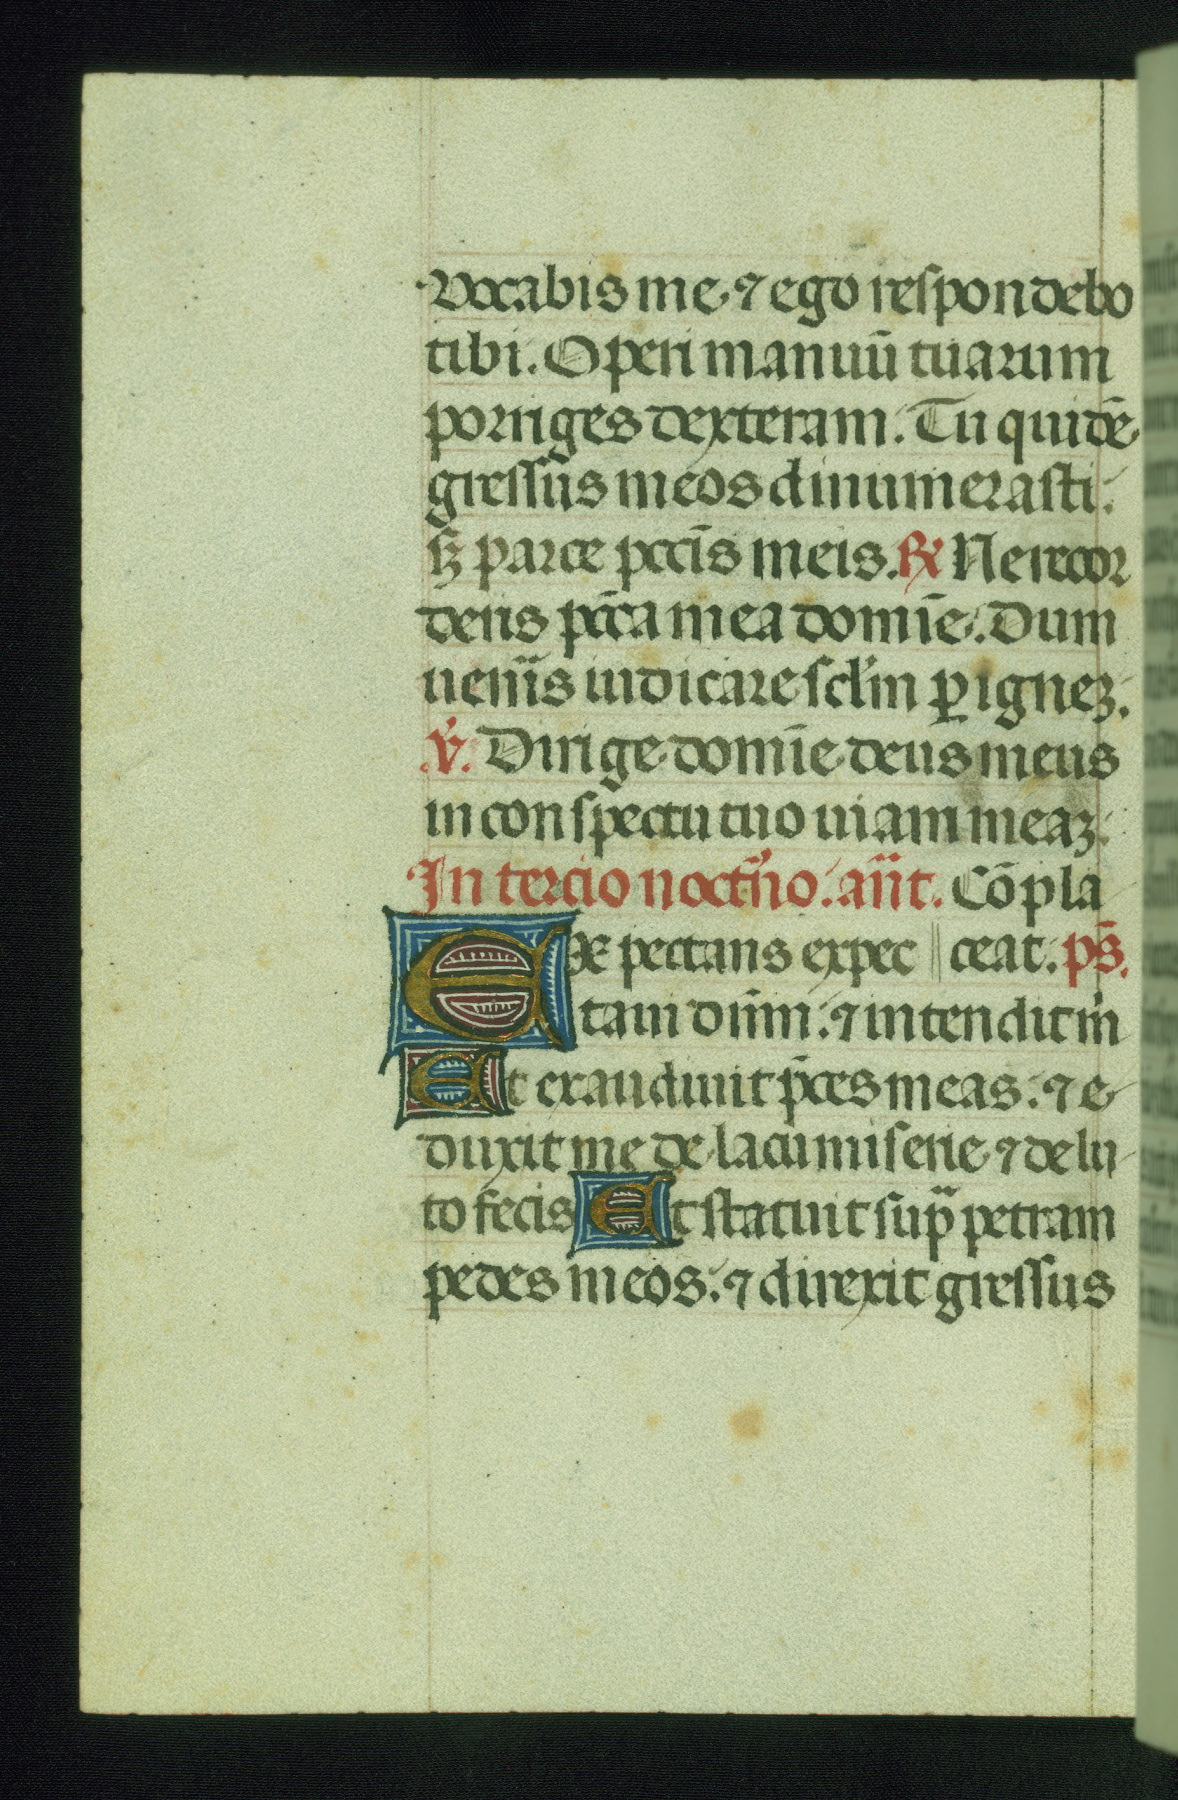 Vocabis me ⁊ ego respondebo
tibi. Operi manuū tuarum
porriges dexteram. Tu quidē
gressus meos dinumerasti:
sꝫ parce pccīs meis. ℟ Ne recor
deris pcca mea domīe. Dum
ueneris iudicare sclm ꝑ ignez.
℣. Dirige domīe deus meus
in conspectu tuo uiam meaz.
In tercio noctno. ant. Cōpla
Expectans expec ceat. ps̄.
taui dn̄m: ⁊ intendit m
Et exaudiuit p̄ces meas: ⁊ e
duxit me de lacu miserie ⁊ de lu
to fecis Et statuit sup petram
pedes meos: ⁊ direxit gressus